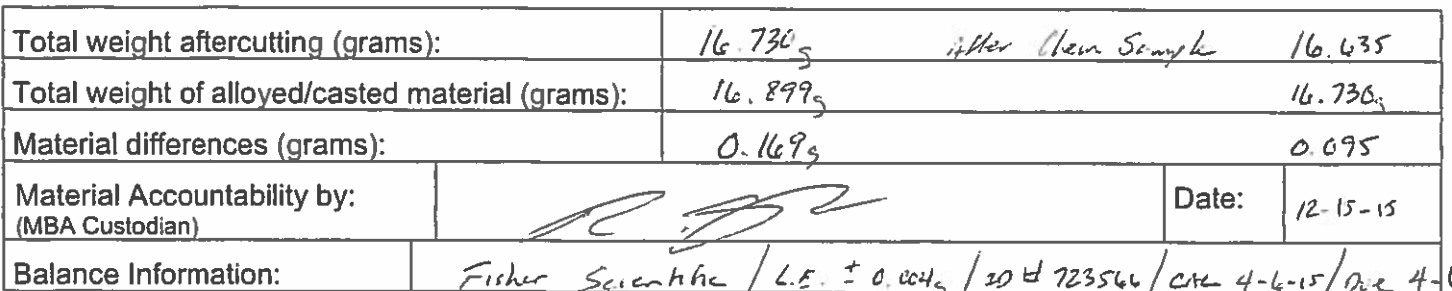 Total weight aftercutting (grams): 16.730g After Chem Sample 16.635
Total weight of alloyed/casted material (grams): 16.899g 16.730g
Material differences (grams): 0.169g 0.095
Material Accountability by: Date: 12-15-15
(MBA Custodian)
Balance Information: Fisher Scientific / L.E. ± 0.004g / ID # 723566 / 4-6-15 / Due 4-